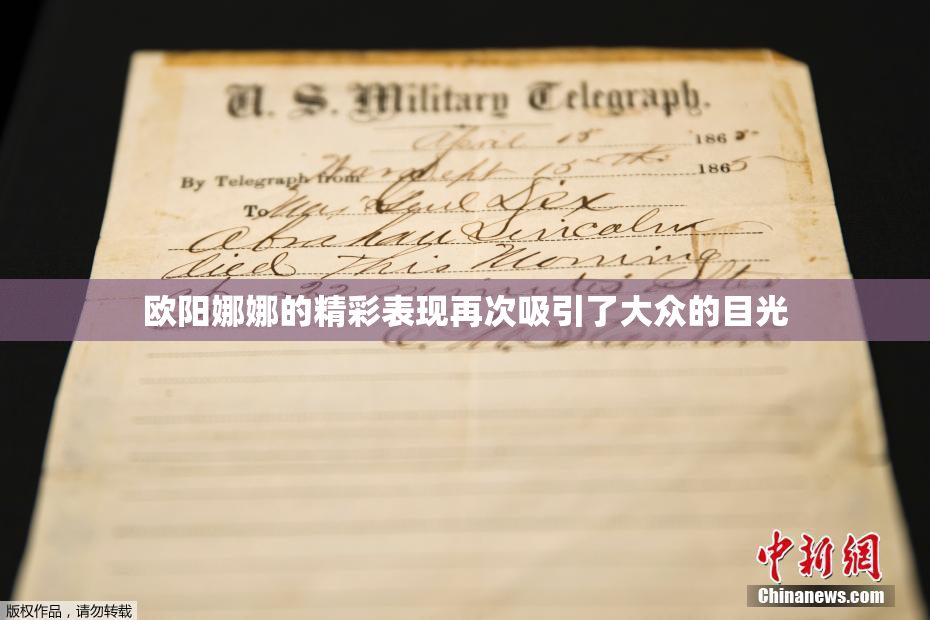 U. S. Military Telegraph.
April 15 1865
By Telegraph from War Dept 15th 1865
To Maj Genl Dix
Abraham Lincoln
died This Morning
22 minutes after
欧阳娜娜的精彩表现再次吸引了大众的目光
E. M. Stanton
中新网
Chinanews.com
版权作品，请勿转载